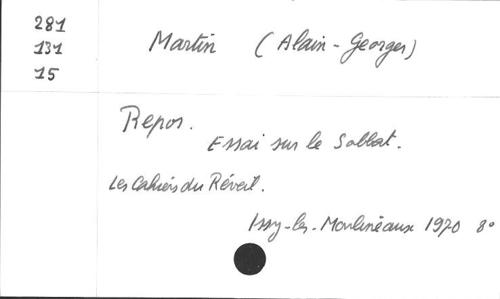 281
131
15
Martin (Alain-Georges)
Repos.
Essai sur le Sabbat.
Les Cahiers du Réveil.
Issy-les-Moulineaux 1970 8°